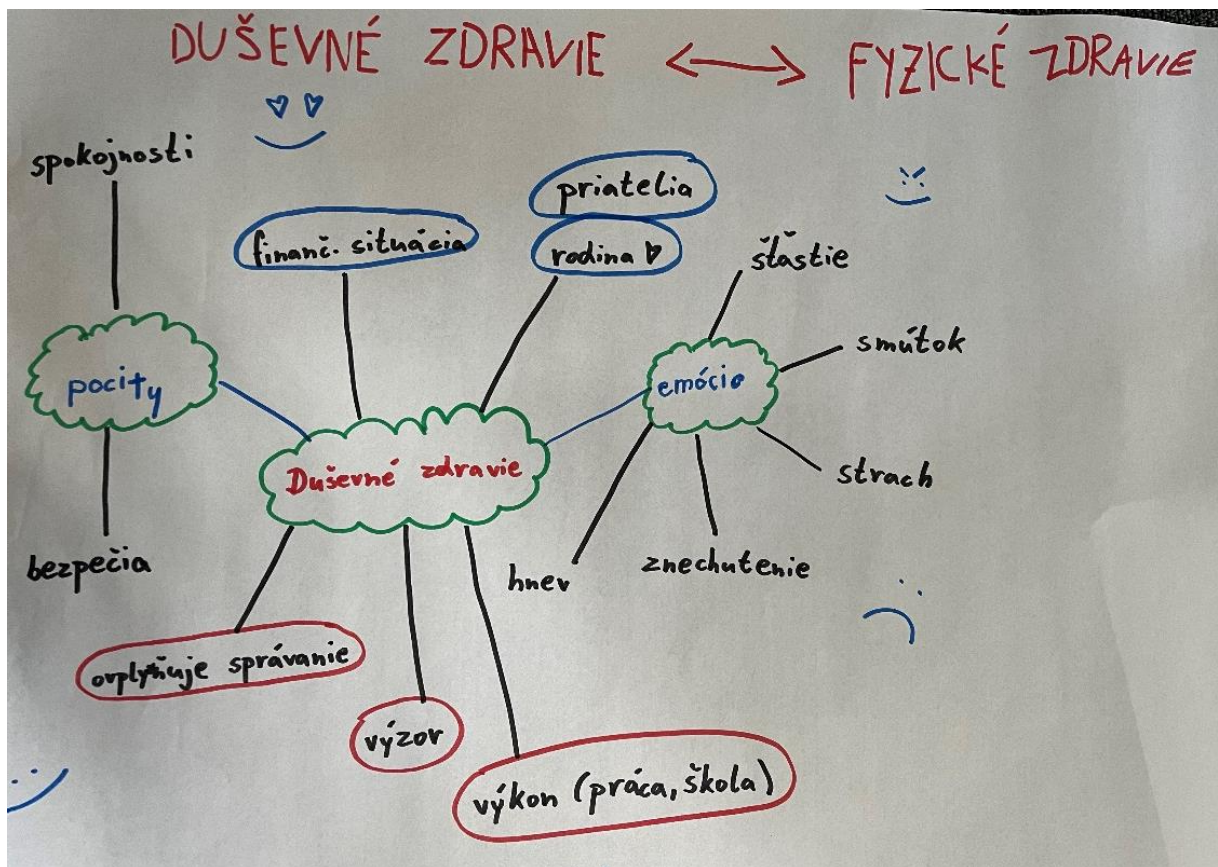 DUŠEVNÉ ZDRAVIE ↔ FYZICKÉ ZDRAVIE
spokojnosti
priatelia
finanč. situácia
rodina ♡
šťastie
smútok
pocity
emócie
Duševné zdravie
strach
bezpečia
hnev
znechutenie
ovplyvňuje správanie
výzor
výkon (práca, škola)